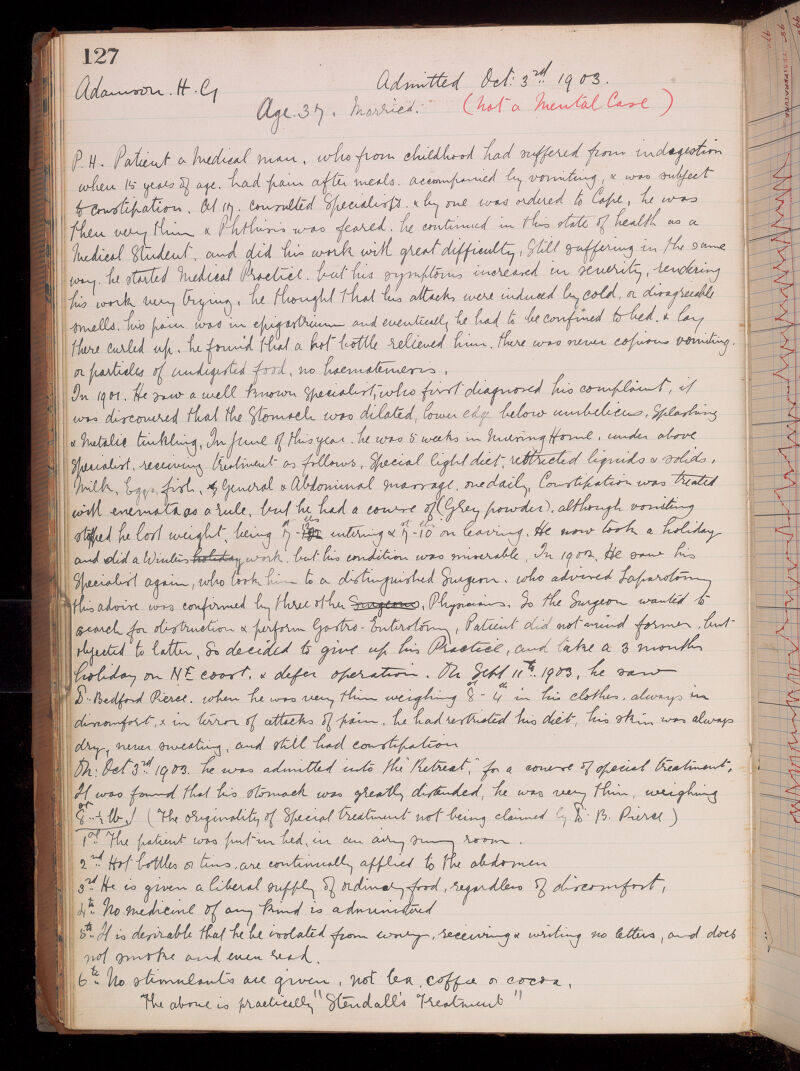 127
Adamson. H. G
Admitted Oct: 3rd 1903.
Age. 37. Married. (Not a Mental Case)
P. H. Patient a Medical man, who from childhood had suffered from indigestion
when 15 years of age. had pain after meals. accompanied by vomiting, & was subject
to constipation. At 17. consulted Specialists. & by one was ordered to Cape, he was
then very thin & Phthisis was feared. he continued in this state of health as a
Medical Student, and did his work with great difficulty, Still suffering in the same
way. he started Medical Practice. but his symptoms increased in severity, rendering
his work very trying. he thought that his attacks were induced by cold, or disagreeable
smells. his pain was in epigastrium and eventually he had to be confined to bed. & lay
there curled up. he found that a hot bottle relieved him. there was never copious vomiting.
or particles of undigested food, no haematemesis.
In 1901. He saw a well known Specialist, who first diagnosed his complaint, it
was discovered that the Stomach was dilated, lower edge below umbilicus, Splashing
& Metalic tinkling, In June of this year. he was 5 weeks in Nursing Home. under above
Specialist. receiving treatment as follows, Special light diet, restricted liquids & solids.
Milk, Eggs, fish, & General & Abdominal massage, one daily, Constipation was treated
with enemata as a rule, but he had a course of (Grey powder). although vomiting
stopped he lost weight, being 9st- entering & 9st-10lbs on leaving. He now took a holiday
and did a Winters holiday work. but his condition was miserable, In 1902. He saw his
Specialist again, who took him to a distinguished Surgeon. who advised Laparotomy
this advise was confirmed by three other Surgeons, Physicians. So the Surgeon wanted to
search for obstruction & perform Gastro-Enterotomy, Patient did not mind former, but
objected to latter, So decided to give up his Practice, and take a 3 months
holiday on NE coast. & defer operation. On Sept 11th 1903, he saw
Dr. Bedford Pierce. when he was very thin weighing 8st-4lb in his clothes. always in
discomfort, & in terror of attacks of pain. he had restricted his diet, his skin was always
dry, never sweating, and still had constipation
On: Oct 3rd 1903. he was admitted into the "Retreat," for a course of special treatment.
It was found that his stomach was greatly distended, he was very thin, weighing
8st- lb. (The originality of Special treatment not being claimed by Dr. B. Pierce)
1st The patient was put in bed, in an airy sunny room.
2nd Hot bottles or tins. are continually applied to the abdomen
3rd He is given a liberal supply of ordinary food, regardless of discomfort,
4th No medicine of any kind is administered
5th It is desirable that he be isolated from worry, receiving & writing no letters, and does
not smoke and even read.
6th No stimulants are given, not tea, coffee or cocoa,
The above is practically "Stendall's Treatment"
TEMPERATURE